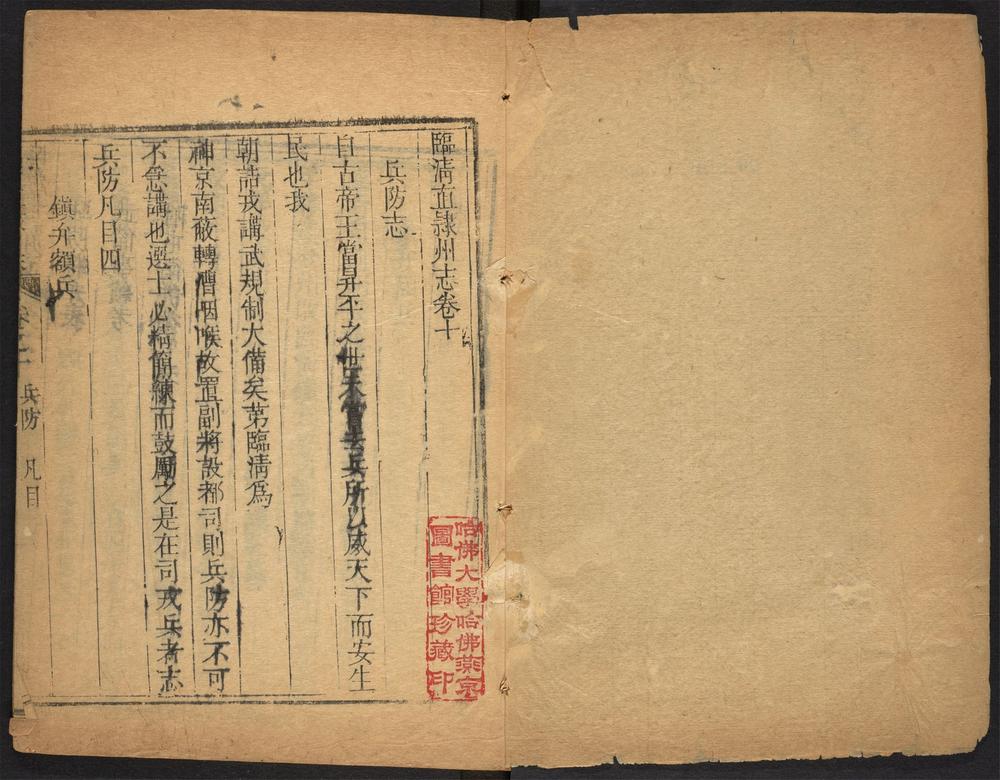 臨清直隸州志卷十
兵防志
自古帝王當昇平之世未嘗去兵所以威天下而安生
民也我
朝詰戎講武規制大備矣第臨清爲
神京南蔽轉漕咽喉故置副將設都司則兵防亦不可
不急講也選士必精簡練而鼓勵之是在司戎兵者志
兵防凡目四
鎮弁額兵
兵防 凡目
哈佛大學哈佛燕京
圖書館珍藏印